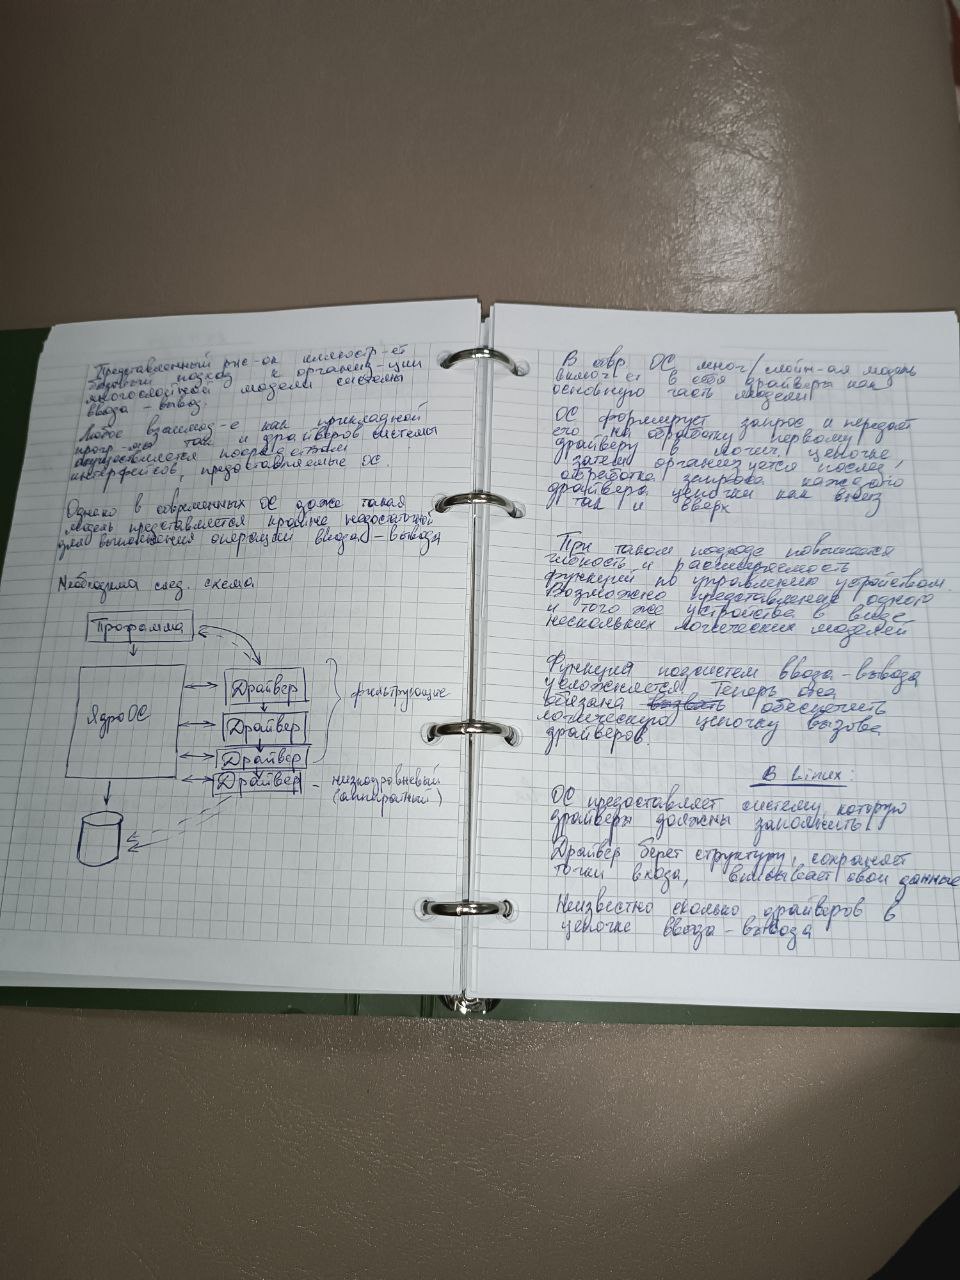 Представленный рис-ок иллюстр-ет
базовый подход к организ-ции
многослойной модели системы
ввода - вывод.
Любое взаимод-е как прикладной
прогр-мы так и драйверов системы
осуществляется посредством
интерфейсов, предоставляемые ОС.
Однако в современных ОС даже такая
модель представляется крайне недостаточной
для выполнения операций ввода - вывода
Необходима след. схема
Программа
Ядро ОС
Драйвер
Драйвер
Драйвер
Драйвер
фильтрующие
- низкоуровневый
(аппаратный)
В совр. ОС мног/слойн-ая модель
включ-ет в себя драйверы как
основную часть модели
ОС формирует запрос и передаёт
его на обработку первому
драйверу в логич. цепочке,
затем организуется послед.
обработка запроса каждого
драйвера цепочки как вниз
так и вверх
При таком подходе повышается
гибкость и расширяемость
функций по управлению устройством.
Возможно представление одного
и того же устройства в виде
нескольких логических моделей
Функция подсистем ввода - вывода
усложняется. Теперь она
обязана вызвать обеспечить
логическую цепочку вызова
драйверов.
В Linux:
ОС предоставляет систему, которую
драйверы должны заполнить
Драйвер берет структуру, сохраняет
точки входа, вписывает свои данные
Неизвестно сколько драйверов в
цепочке ввода - вывода